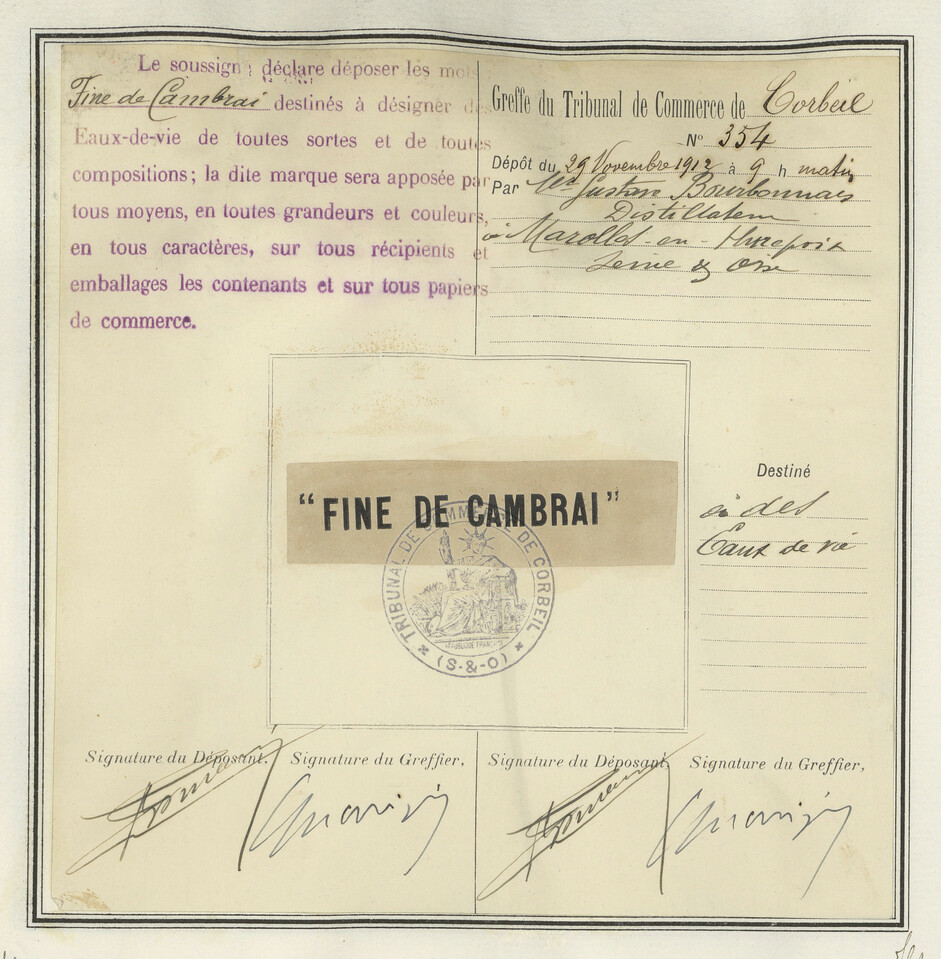 Le soussigné déclare déposer les mots
Fine de Cambrai destinés à désigner des
Eaux-de-vie de toutes sortes et de toutes
compositions; la dite marque sera apposée par
tous moyens, en toutes grandeurs et couleurs,
en tous caractères, sur tous récipients et
emballages les contenants et sur tous papiers
de commerce.
Greffe du Tribunal de Commerce de Corbeil
N° 354
Dépôt du 29 Novembre 1912 à 9 h matin
Par Mr Gustave Bourbonnais
Distillateur
à Marolles-en-Hurepoix
Seine & Oise
"FINE DE CAMBRAI"
TRIBUNAL DE COMMERCE DE CORBEIL
RÉPUBLIQUE FRANÇAISE
(S-&-O)
Destiné
à des
Eaux de vie
Signature du Déposant, Signature du Greffier,
Signature du Déposant, Signature du Greffier,